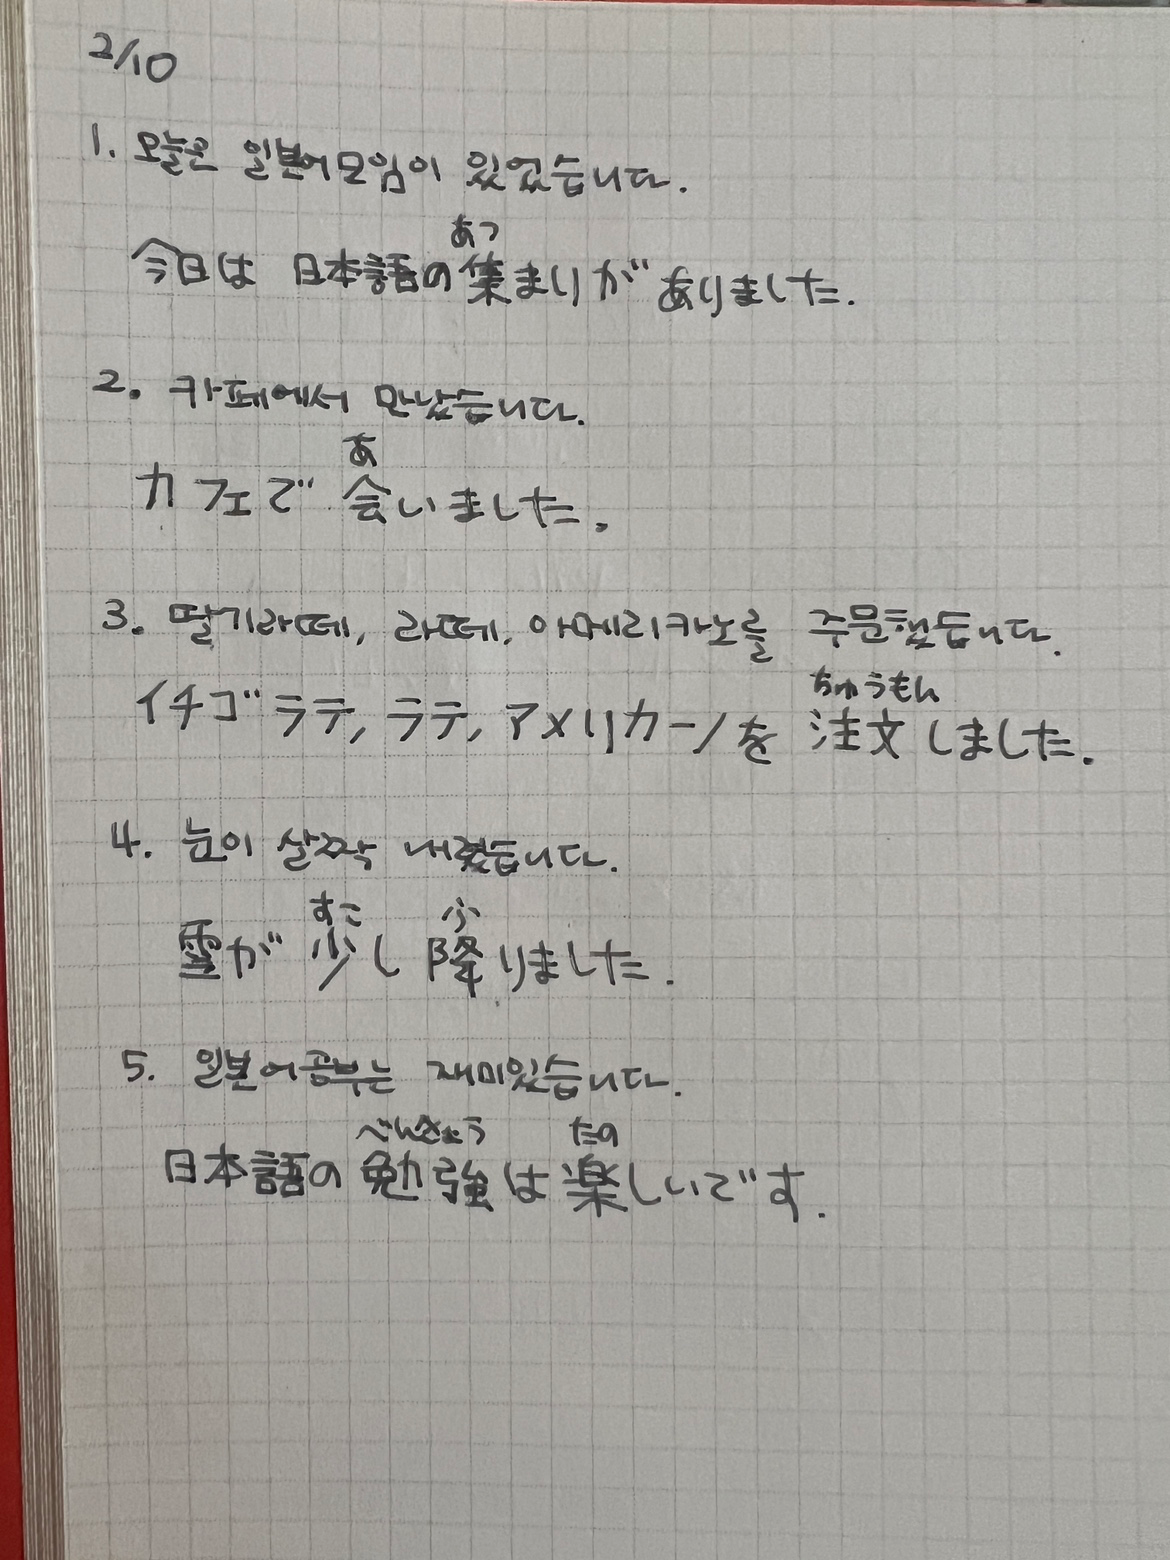 2/10
1. 오늘은 일본어모임이 있었습니다.
あつ
今日は 日本語の集まりが ありました.
2. 카페에서 만났습니다.
あ
カフェで 会いました.
3. 딸기라떼, 라떼, 아메리카노를 주문했습니다.
ちゅうもん
イチゴ ラテ, ラテ, アメリカーノを 注文しました.
4. 눈이 살짝 내렸습니다.
すこ ふ
雪が 少し 降りました.
5. 일본어공부는 재미있습니다.
べんきょう たの
日本語の 勉強は 楽しいです.